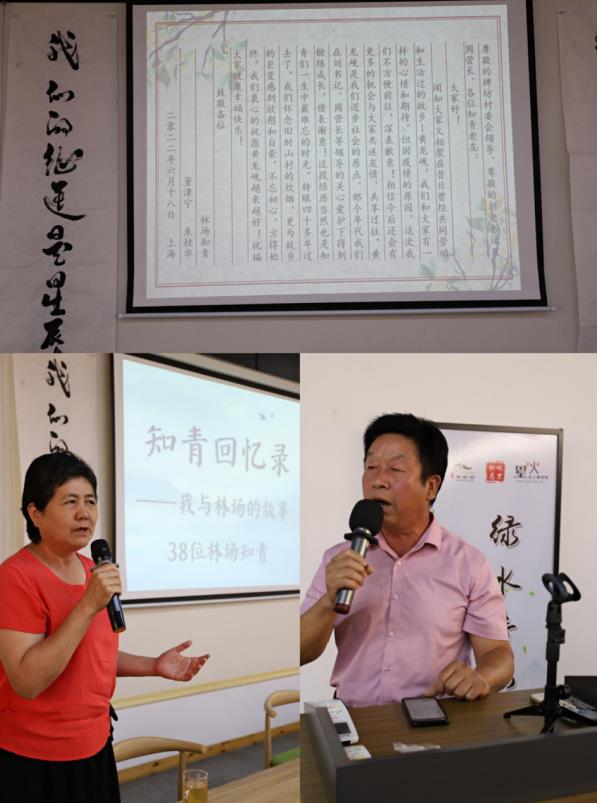 我们的征途是星辰
尊敬的牌坊村委会领导、尊敬的刘老书记、
周营长、各位知青老友：
大家好！
闻知大家又相聚在昔日曾经共同劳动
和生活过的故乡—黄龙岘，我们和大家有一
样的心情和期待。但因疫情的原因，这次我
们不方便前往，深表歉意！相信今后还会有
更多的机会与大家共述友情、共享过往。黄
龙岘是我们迈步社会的原点，那个年代我们
在刘书记、周营长等领导的关心爱护下得到
锻炼成长，借表谢意！这段经历当然也是知
青们一生中最难忘的时光。转眼四十多年过
去了，我们怀念旧时山村的炊烟，更为故乡
的巨变感到欣慰和自豪。不忘初心，方得始
终，我们衷心的祝愿黄龙岘越来越好！祝福
大家健康幸福快乐！
致敬各位
林场知青
董津宁 朱桂华
二零二二年六月十八日 上海
我们的
知青回忆录
——我与林场的故事
38位林场知青
星火
绿水